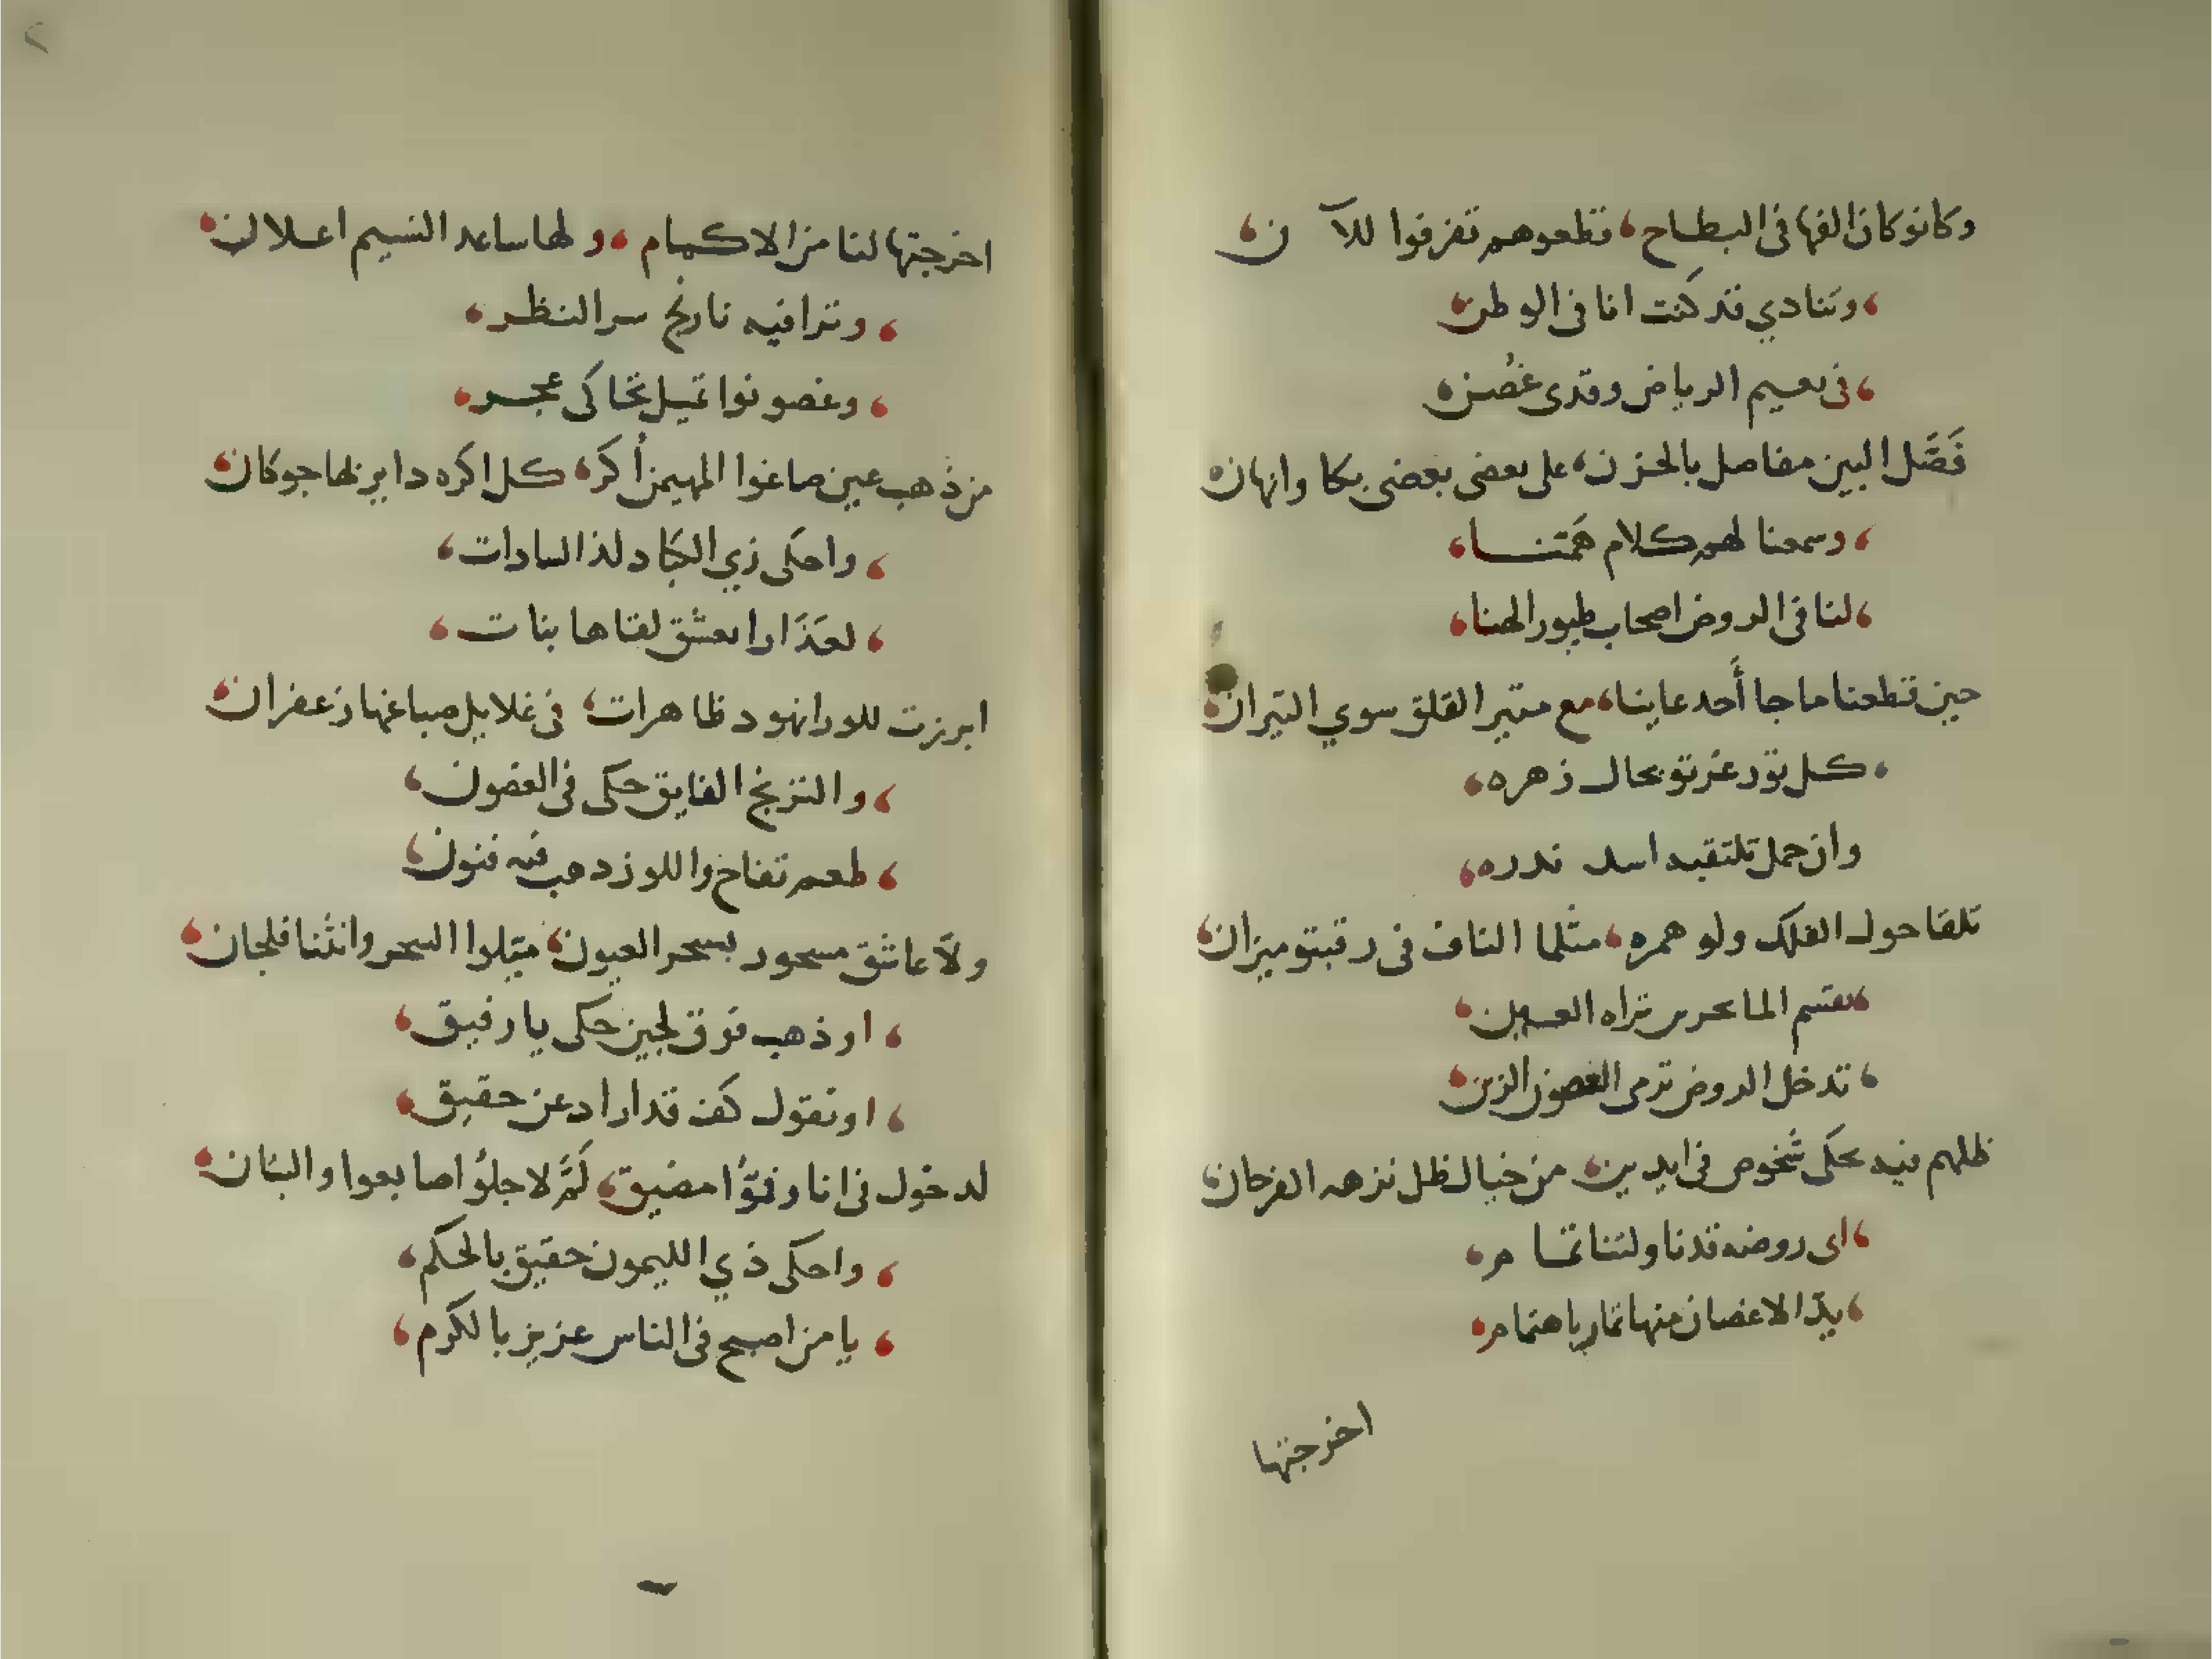 وكانو كان الفها فى البطاح، قطعوهم تفرفوا للآن،
، وتنادي قد كنت انا فى الوطن،
، فى نعيم الرياض وقدى غُصن،
فَصَّل البين مفاصل بالحزن، على بعضى بعضى بكا وانهان،
، وسمعنا لهم كلام هَمَّتنا،
، لنا فى الروض اصحاب طيور الهنا،
حين قطعنا ما جا أَحد عاينا، مع متير القلق سوي التيران،
، كل تور عزتو بحال زهره،
وان حمل تلتقيه اسد ندره،
تلقا حول الفلك ولو همره، مثلما الناف فى رقبتو ميزان،
، يقسم الما بحرس تراه العين،
، تدخل الروض ترمى الغصون الزين،
ظلهم فيه يحكى شخوص فى ايدين، من خيال ظل نزهه الفرحان،
، اى روضه قدنا ولتنا تمام،
، يدّ الاغصان منها ثمار باهتمام،
اخرجتها
اخرجتها لنا من الاكمام، ولها ساعد النسيم اعلان،
، وترا فيه نارنج سر النظر،
، وغصونوا تميل تحاكى عجر،
من ذهب عين صاغوا المهيمن أُكر، كل اكره دايرلها جوكان،
، واحكى زي الكباد لذا السادات،
، لعَذَارا بعشق لقناها بنات،
ابرزت للورا نهود ظاهرات، فى غلايل صباغها زعفران،
، والترنج الفايق حكى فى الغصون،
، طعم تفاح واللوز دهب فيه فنون،
ولّا عاشق مسحور بسحر العيون، ميّلوا السحر وانثنا فلجان،
، او ذهب فوق لجين حكى يا رفيق،
، او تقول كف قد اراد عن حقيق،
لدخول فى انا وفمُّوا مضيق، لَمَّ لاجلُو اصابعوا والبنان،
، واحكى ذي الليمون حقيق بالحكم،
، يا من اصبح فى الناس عزيز بالكرم،